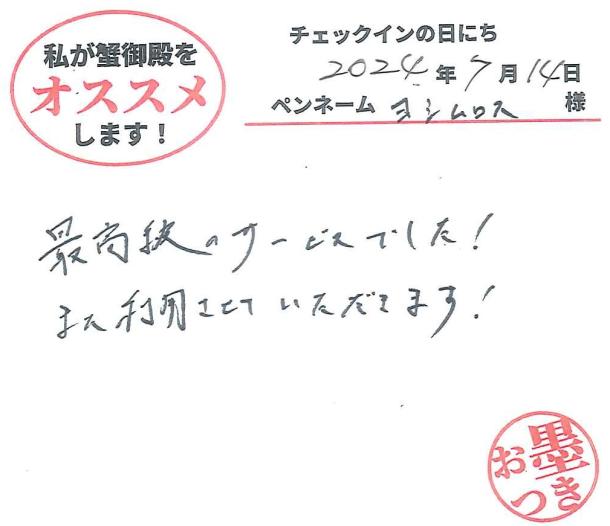 私が蟹御殿を
オススメ
します！
チェックインの日にち
2024年7月14日
ペンネーム ヨシムロス 様
最高級のサービスでした！
また利用させていただきます！
お墨
つき